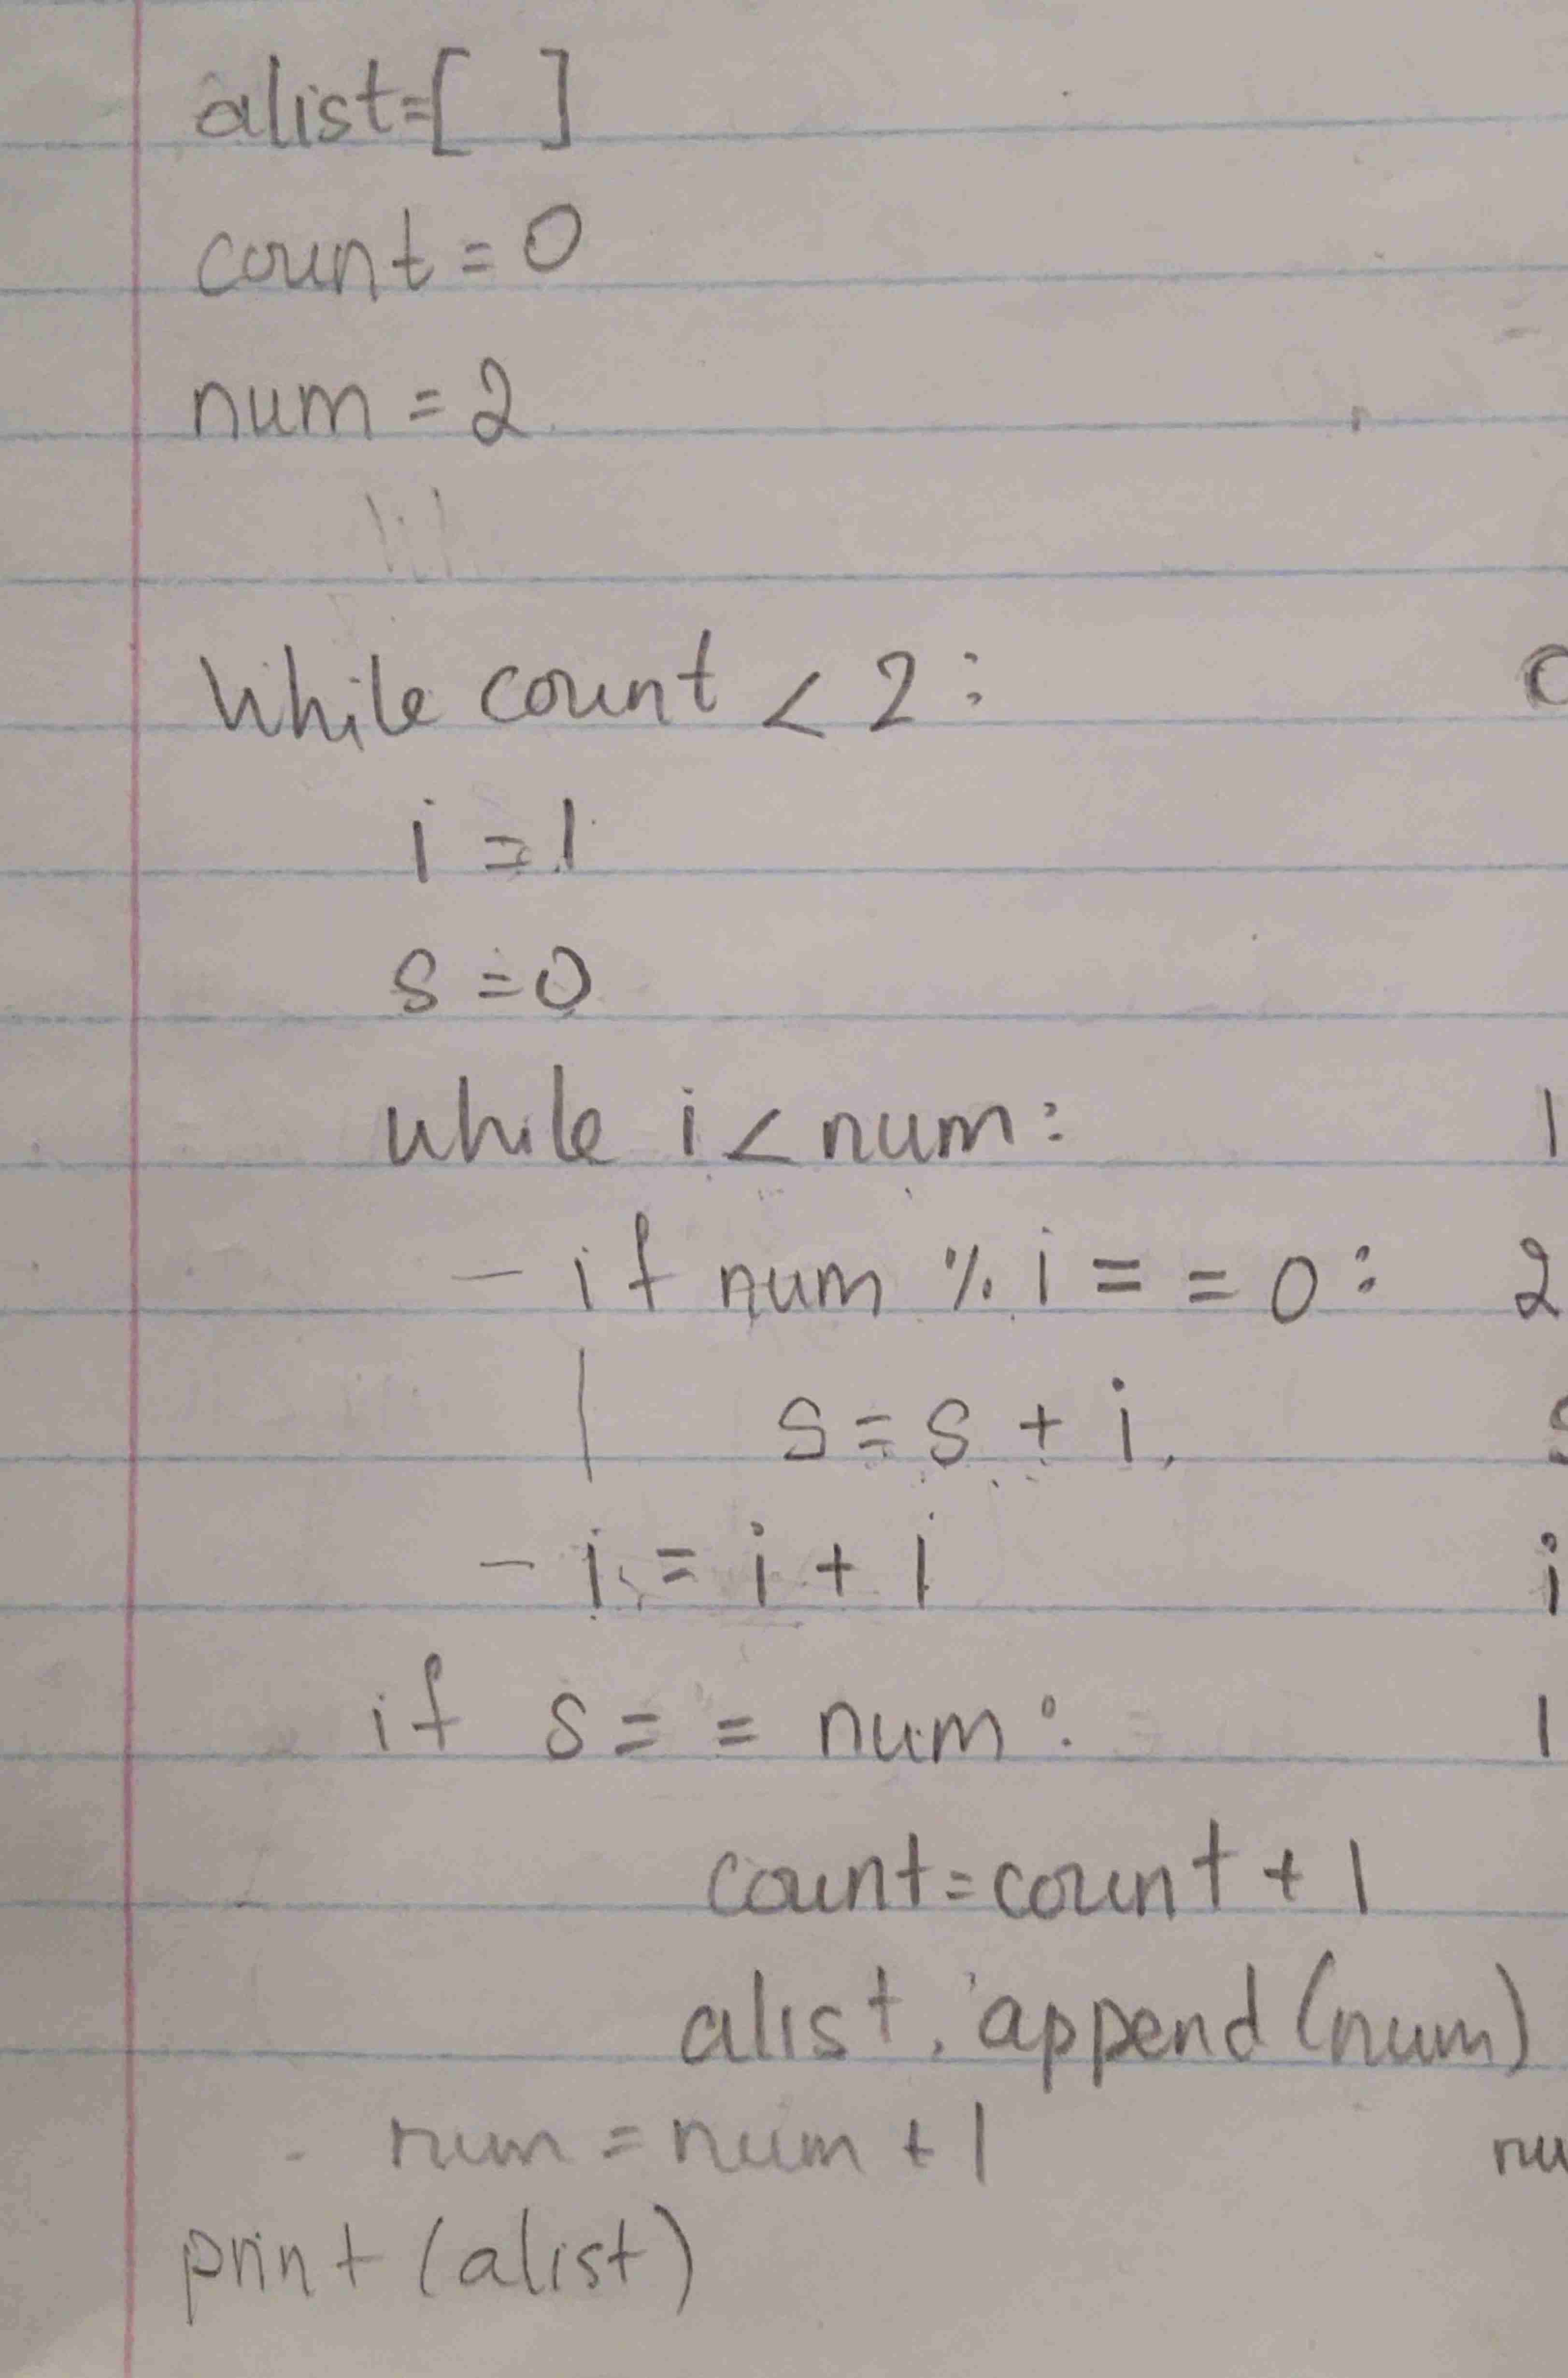 alist=[ ]
count = 0
num = 2
while count < 2:
i = 1
s = 0
while i < num:
- if num % i = = 0: 2
s = s + i.
- i = i + 1 i
if s = = num: 1
count = count + 1
alist.append(num)
num = num + 1 nu
print (alist)